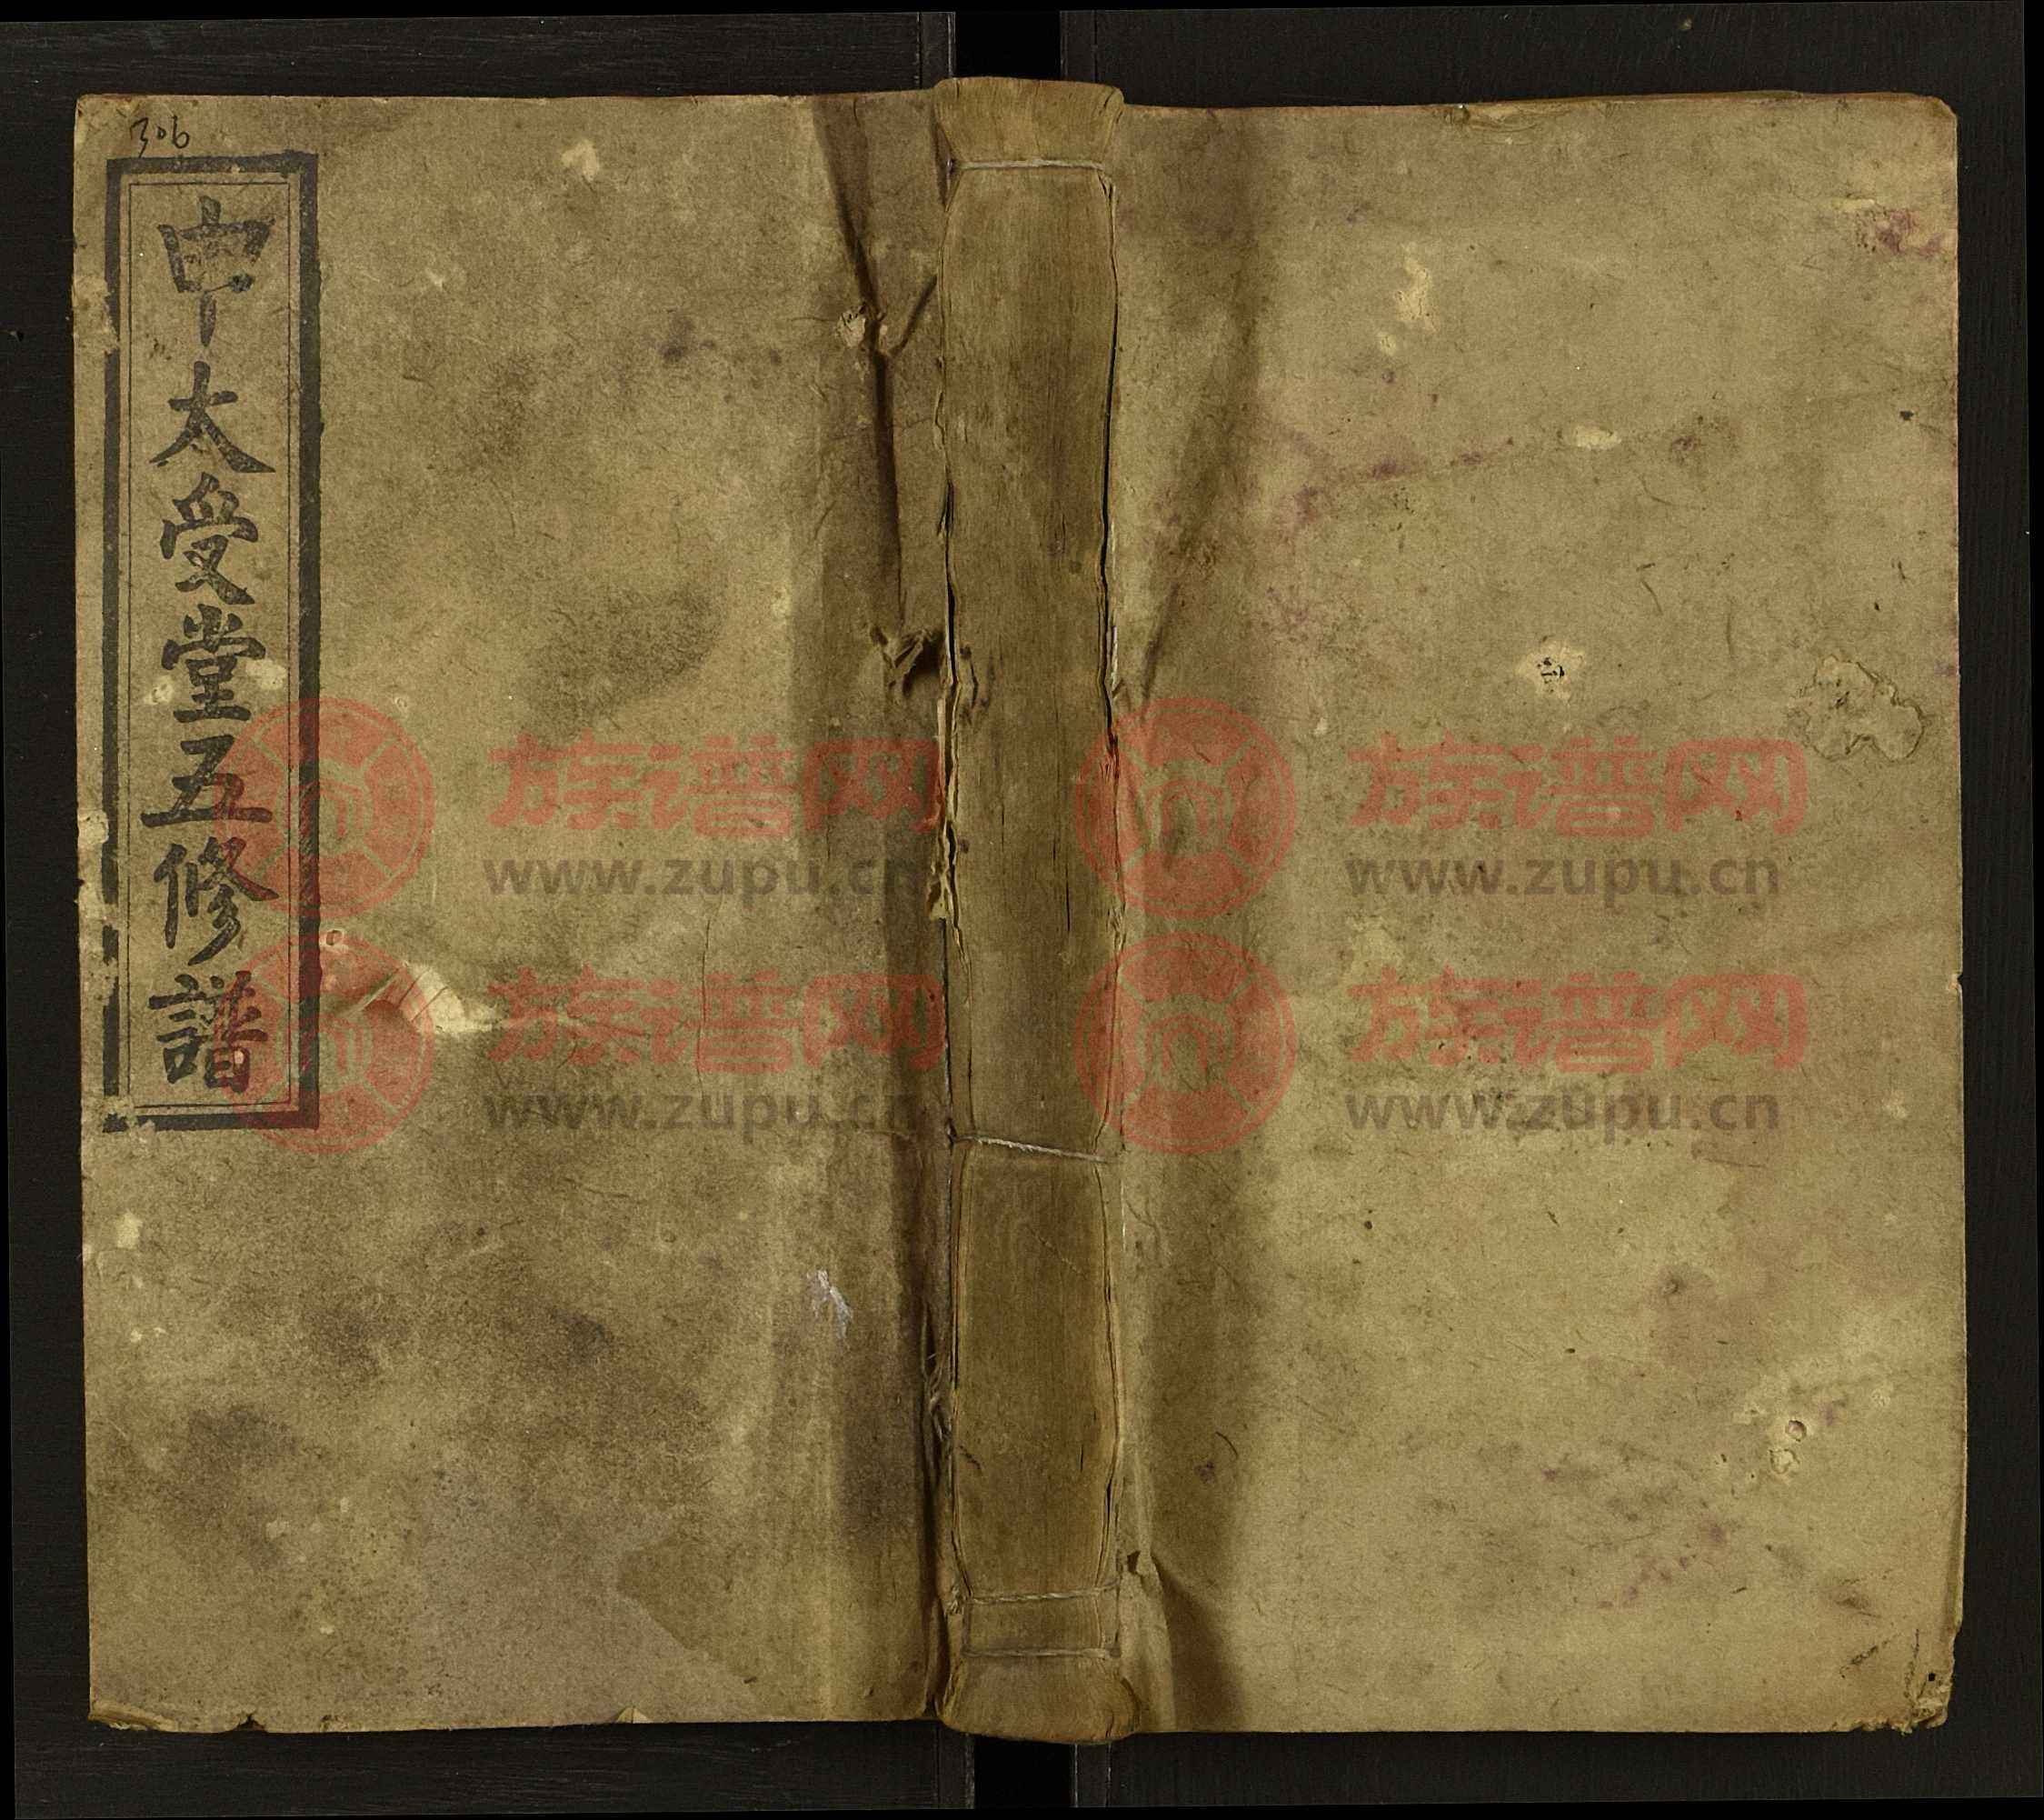 306
申大受堂五修譜
族谱网
www.zupu.cn
族谱网
www.zupu.cn
族谱网
www.zupu.cn
族谱网
www.zupu.cn